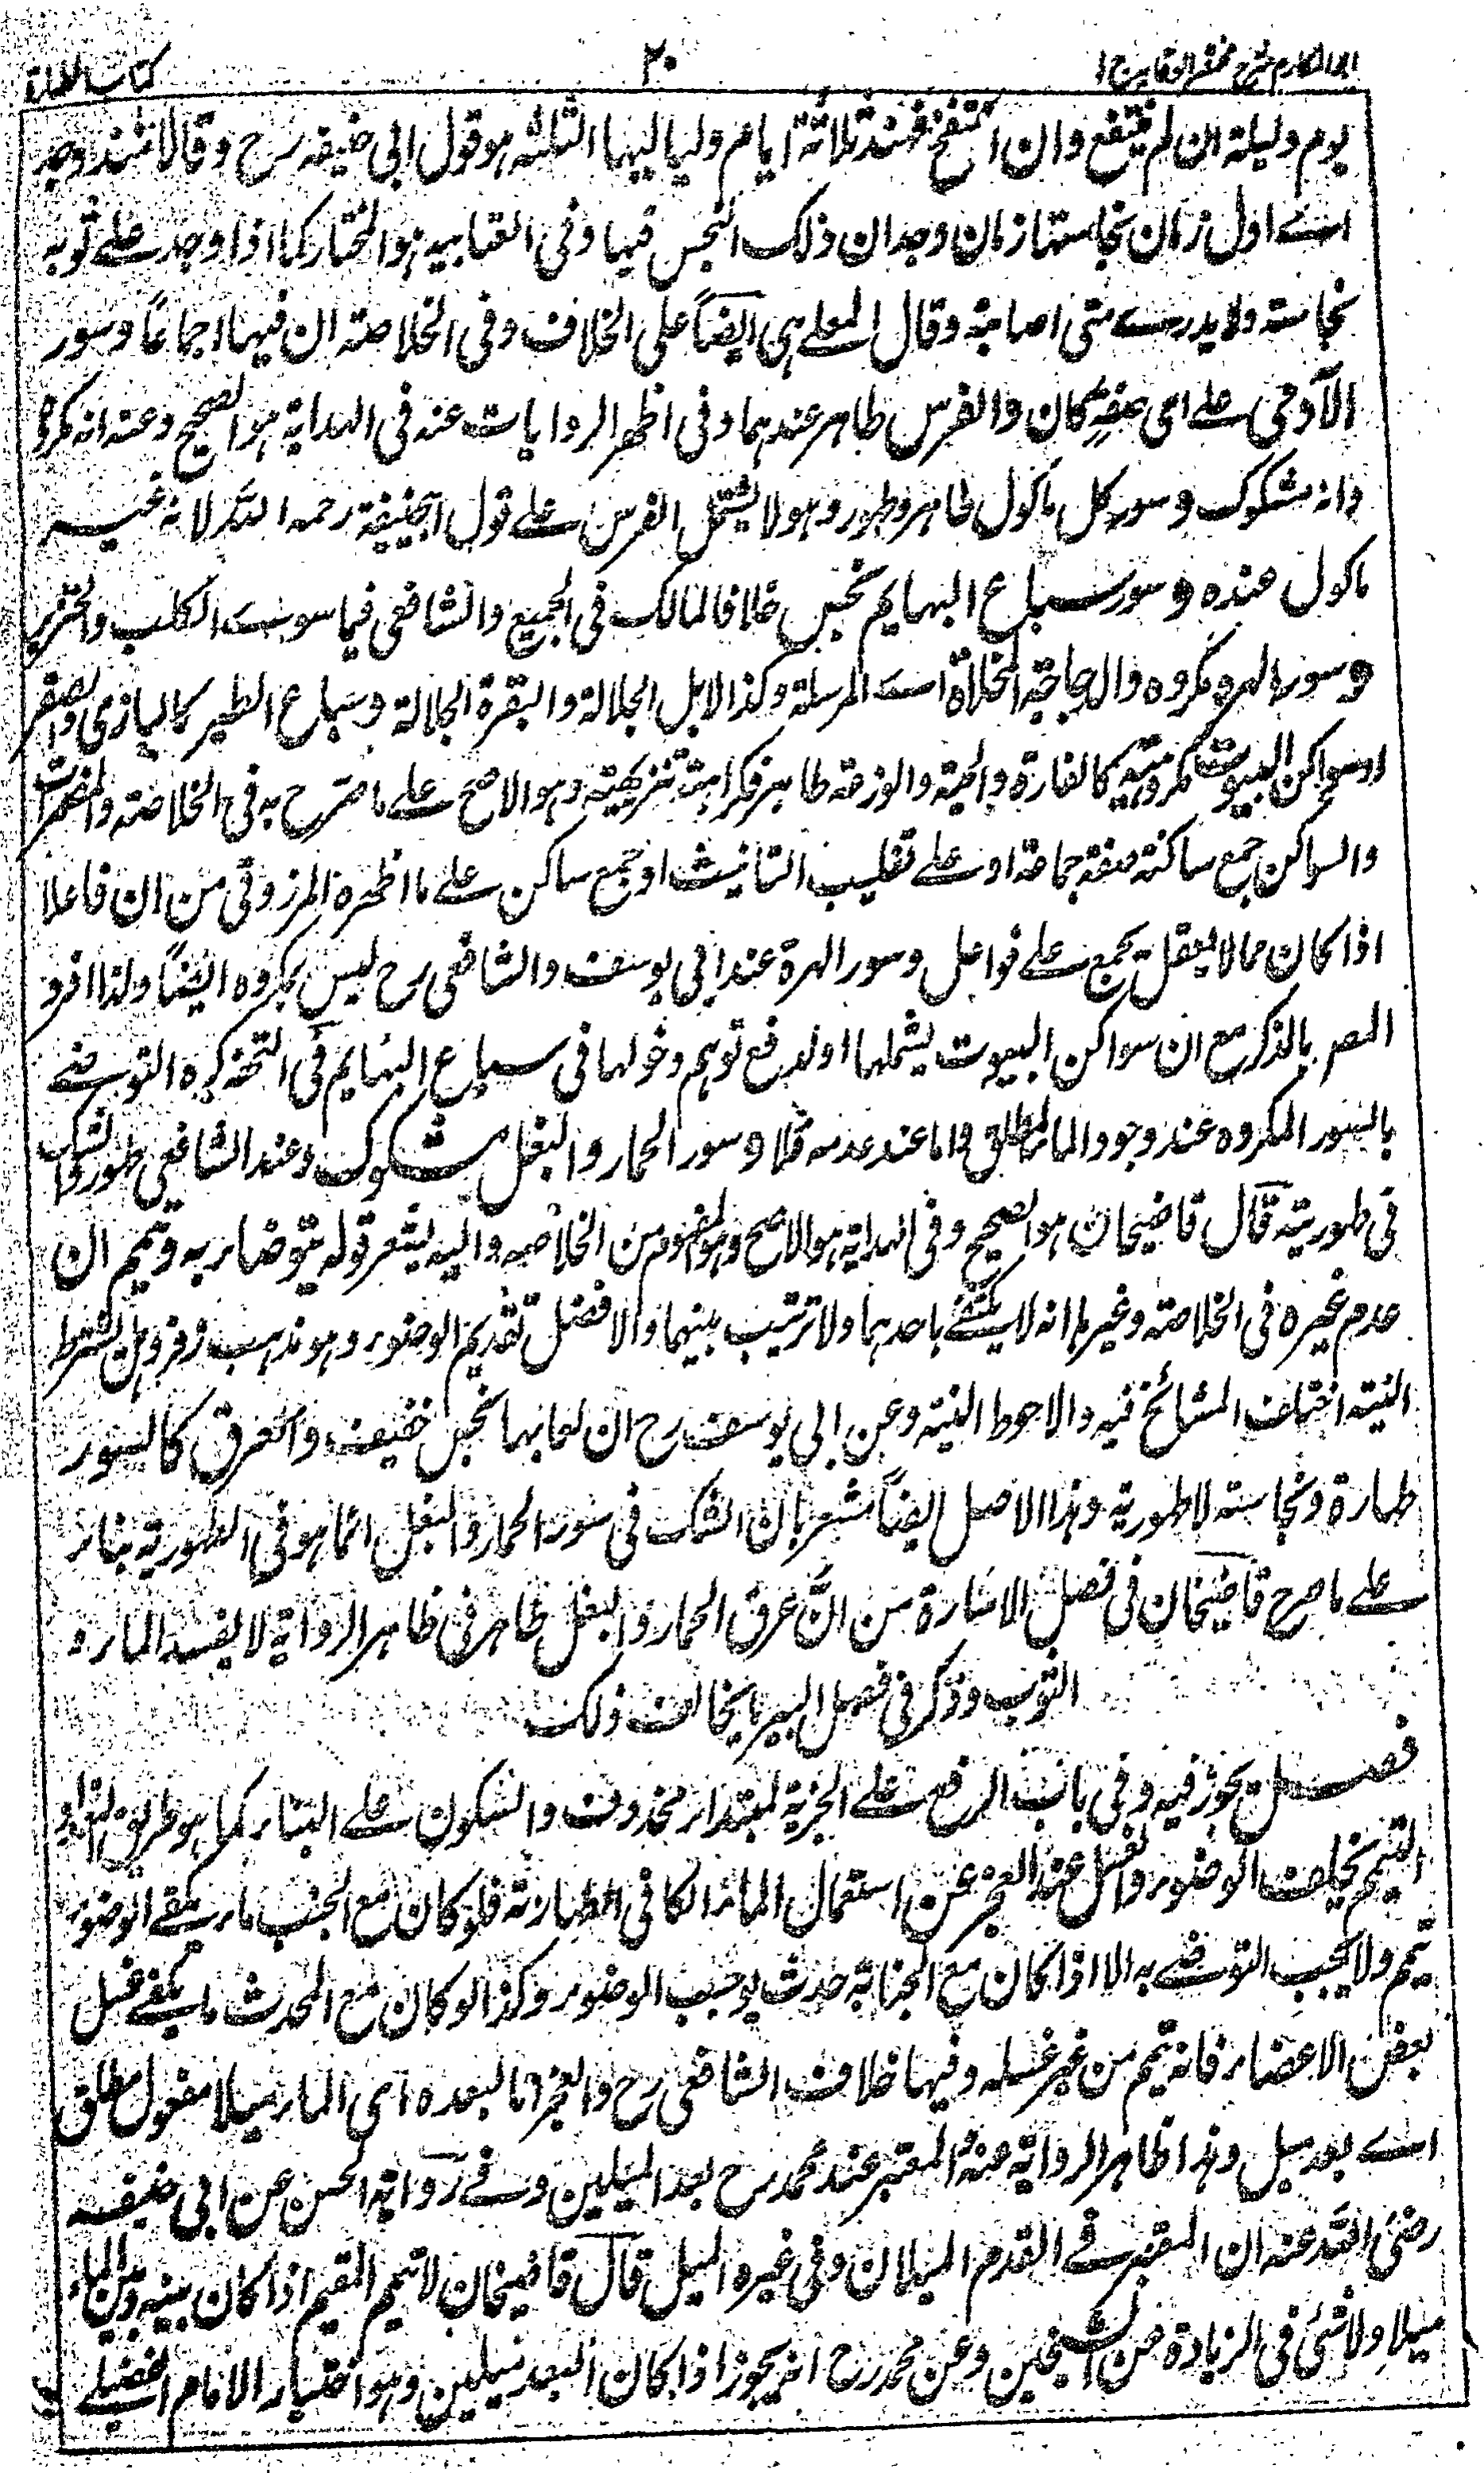 ابو المكارم شرح مختصر الوقاية ج ١
٢٠
كتاب الطهارة
يوم وليلة ان لم ينتفخ وان انتفخ فمنذ ثلاثة ايام ولياليها الثلثه هو قول ابى حنيفه رح وقالا منذ وجد
اے اول زمان نجاستها زمان وجدان ذلك النجس فيها وفى العتابيه هو المختار كما اذا وجد علے ثوبه
نجاسة ولا يدرے متى اصابته وقال المعلے هى ايضاً على الخلاف وفى الخلاصة ان فيها اجماعًا وسور
الآدمى علے اى صفة كان والفرس طاهر عندهما وفى اظهر الروايات عنه فى الهداية هو الصحيح وعنه انه مكروه
وانه مشكوك وسور كل ماكول طاهر وطهور وهو لا يشتمل الفرس علے قول ابيحنيفة رحمه الله لانه غير
ماكول عنده وسور سباع البهايم نجس خلافا لمالك فى الجميع والشافعى فيما سوے الكلب والخنزير
وسور الهرة مكروه والدجاجة المخلاة اے المرسلة وكذا الابل الجلالة والبقرة الجلالة وسباع الطير كالبازى والصقر
وسواكن البيوت مكروهة كالفارة والحية والوزغة طاهر فكراهته تنزيهية وهو الاصح علے ما صرح به فى الخلاصة والمضمرات
والسواكن جمع ساكنة صفة جماعة او علے تغليب التانيث او جمع ساكن علے ما اظهره المرزوقى من ان فاعلا
اذا كان مما لا يعقل يجمع علے فواعل وسور الهرة عند ابى يوسف والشافعى رح ليس بمكروه ايضاً ولذا افرد
المصر بالذكر مع ان سواكن البيوت يشملها او لدفع توهم دخولها فى سباع البهايم فى التحفة كره التوضے
بالسور المكروه عند وجود الماء المطلق واما عند عدمه فلا وسور الحمار والبغل مشكوك وعند الشافعى طهور والشك
فى طهوريته قال قاضيخان هو الصحيح وفى الهداية هو الاصح وهو المفهوم من الخلاصه واليه يشعر قوله يتوضاء به وتيمم ان
عدم غيره فى الخلاصة وغيرها انه لا يكتفے باحدهما ولا ترتيب بينهما والافضل تقديم الوضوء وهو مذهب زفر وهل يشترط
النية اختلف المشائخ فيه والاحوط النية وعن ابى يوسف رح ان لعابهما نجس خفيف والعرق كالسور
طهارة ونجاسته لا طهورية وهذا الاصل ايضاً مشعر بان الشك فى سور الحمار والبغل انما هو فى الطهورية بناء
علے ما صرح قاضيخان فى فصل الاسارة من انّ عرق الحمار والبغل طاهر فى ظاهر الرواية لا يفسد الماء و
الثوب وذكر فى فصل البير ما يخالف ذلك
فصل يجوز فيه وفى باب الرفع علے الخبرية لمبتداء محذوف والسكون علے البناء كما هو طريق التعداد
التيمم يخلف الوضوء والغسل عند العجز عن استعمال الماء الكافى لطهارته فلو كان مع الجنب ماء يكفے الوضوء
تيمم ولا يجب التوضے به الا اذا كان مع الجنابة حدث يوجب الوضوء وكذا لو كان مع المحدث ما يكفے غسل
بعض الاعضاء فانه تيمم من غير غسله وفيها خلاف الشافعى رح والعجز اما لبعده اى الماء ميلا مفعول مطلق
اے بعد ميل وهذا ظاهر الرواية عنه والمعتبر عند محمد رح بعد الميلين وفے رواية الحسن عن ابى حنيفه
رضى الله عنه ان المعتبر فے القدم الميلان وفى غيره الميل قال قاضيخان لا تيمم المقيم اذا كان بينه وبين الماء
ميلا ولا شئ فى الزيادة عن الشيخين وعن محمد رح انه يجوز اذا كان البعد ميلين وهو اختيار الامام الفضلے